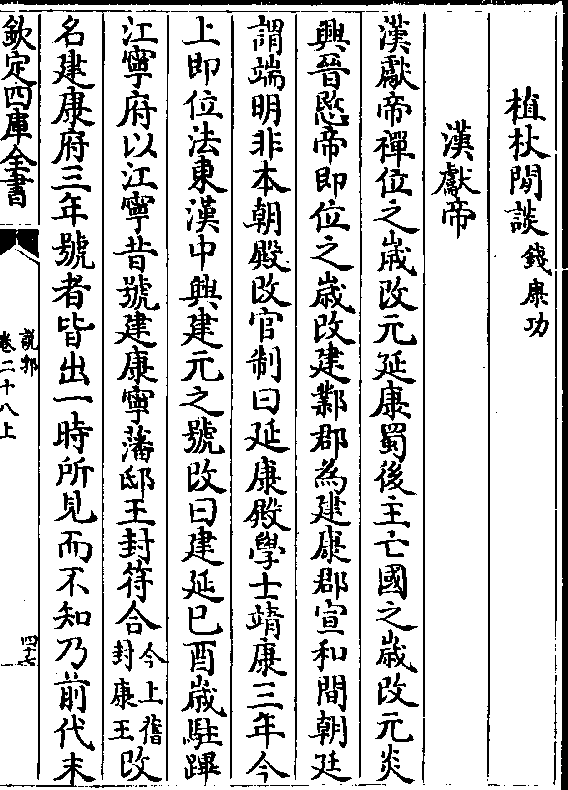 植杖閒談錢康功
漢獻帝
漢獻帝禪位之歲改元延康蜀後主亡國之歲改元炎
興晉愍帝即位之歲改建鄴郡為建康郡宣和間朝廷
謂端明非本朝殿改官制曰延康殿學士靖康三年今
上即位法東漢中興建元之號改曰建延巳酉歲駐蹕
江寧府以江寧昔號建康寧藩邸王封符合今上舊封康王改
名建康府三年號者皆出一時所見而不知乃前代末
欽定四庫全書
說郛
卷二十八上
四十七